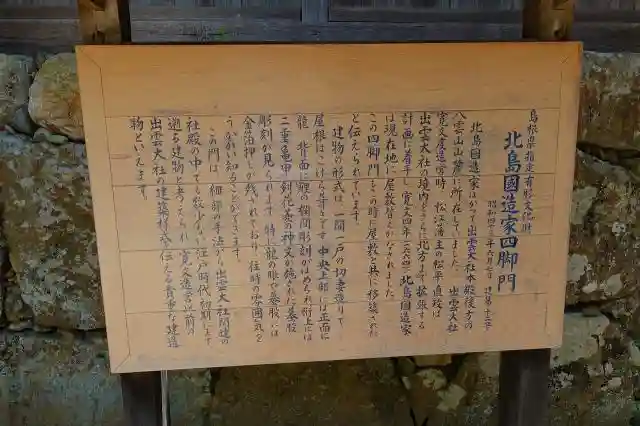 島根県指定有形文化財
北島國造家四脚門
北島国造家はかつて出雲大社本殿後方の
八雲山山麓に所在していました。出雲大社
寛文度造営時、松江藩主の松平直政は
出雲大社の境内をさらに北方まで拡張する
計画に着手し、寛文四年(一六六四)北島国造家
は現在地に屋敷替えがなされました。
この四脚門もその時に屋敷と共に移築された
と伝えられています。
建物の形式は、一間一戸の切妻造りで
屋根はこけら葺きです。中央上部に正面に
龍、背面に
の欄間彫刻がはめられ、桁上には
二重亀甲剣花菱の神紋が施された蟇股
彫刻が見られます。特に龍の眼や蟇股には
金箔押しが残されており、往時の雰囲気を
うかがい知ることができます。
この門は、細部の手法から出雲大社関連の
社殿の中でも数少ない江戸時代初期にまで
遡る建物と考えられ、寛文造営以前の
出雲大社の建築様式を伝える貴重な建造
物といえます。